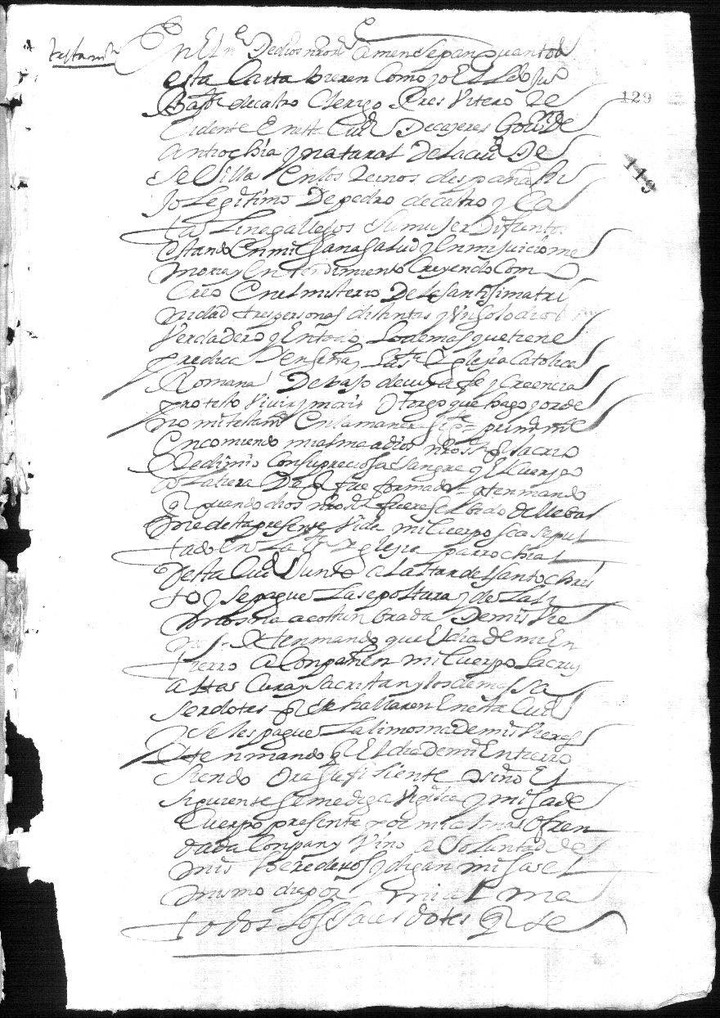 testamto
En El ne De dios nro sor amen Sepan quantos
esta Carta bieren Como yo El Ldo Juo
Bapta de castro Clerigo Pres Vitero Re
cidente En esta Ciud De caseres Govno de
Antiochia y natural De la ciud De
Se Villa En los Reinos despaña hi
jo Legitimo De pedro de castro y Ca
talina gallegos Su muger Difuntos
estando En mi Sana Salud y En mi juicio me
moria y Entendimiento Creyendo Como
Creo En el misterio De la santisima tri
nidad tres personas distintas y Un solo dios
Verdadero y En todo Lo demas que tiene
predica Y Enseña La Sta Yglesia Catolica
Romana Debajo de cuya fe y Creencia
protesto vivir y morir Otorgo que hago y orde
no mi testamto En la manera sigte = primeramte
Encomiendo mi alma a dios nro sor q la crio
Y Redimio Con su preciosa Sangre y El cuerpo
a la tierra De q fue formado = Yten mando
q quando dios nro sor fuere servido de lleBar
me de sta presente Vida mi Cuerpo sea sepul
tado En La Sta Yglesia parrochial
Desta Ciud Junto a La tar del Santo chris
to y Se pague La sepoltura y de la li
mosna acostunbrada De mis bie
nes - Yten mando que El dia de mi En
tierro aConpañen mi Cuerpo La cruz
alta Cura y Sacristan y los demas sa
serdotes q se hallaren En esta Ciud
y Se les pague La limosna de mis bienes
Yten mando q El dia de mi Entierro
Siendo Ora sufisiente Y si no El
siguiente Se me diga Vigilia y misa de
Cuerpo presente por mi alma Ofren
dada Con pan y Vino a Voluntad de
mis herederos y digan misas el
mismo dia por mi alma
todos Los Saserdotes q se
129
119